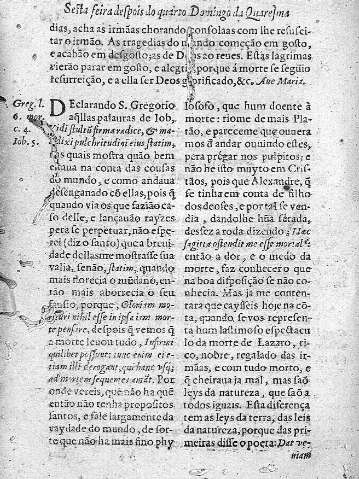 Sesta feira despois do quarto Domingo da Quaresma
dias, acha as irmãas chorando, consolaas com lhe resuscitar
o irmão. As tragedias do mundo começão em gosto,
e acabão em desgosto; as de Deos ao reues. Estas lagrimas
vierão parar em gosto, e alegria, porque á morte se seguio
resurreição, e a ella ser Deos glorificado, &c. Aue Maria.
Greg. l.
6. mor.
c. 4.
Iob. 5.
DEclarando S. Gregorio
aquellas palauras de Iob,
Vidi stultū firma radice, & maledixi
pulchritudini eius statim,
nas quais mostra quão bem
estaua na conta das cousas
do mundo, e como andaua
desenganado cõ ellas, pois q̃
quando via os que fazião caso
delle, e lançauão rayzes
pera se perpetuar, não esperei
(diz o santo) que a breuidade
dellas me mostrasse sua
valia, senão, statim, quando
mais florecia o mũdano, então
mais aborrecia o seu
fausto, porque,
nihil esse in ipsa
pensare, despois q̃ vemos q̃
a morte leuou tudo,
Por
onde vereis, que não ha quẽ
então não tenha propositos
santos, e fale largamente da
vaydade do mundo, de sorte
que não ha mais fino phylosofo,
que hum doente à
morte: riome de mais Platão,
e pareceme que ouueramos
de andar ouuindo estes,
pera prégar nos pulpitos; e
não he isso muyto em Cristãos,
pois que Alexandre, q̃
se tinha em conta de filho
dos deoses, e por tal se vendia,
dandolhe hũa sétada,
desfez a roda dizendo: Hæc
sagitta ostendit me esse mortalẽ:
então a dor, e o medo da
morte, faz conhecer o que
na boa disposição se não conhecia.
Mas ja me contentara
que cayſseis hoje na cõta,
quando se vos representa
hum lastimoso espectaculo
da morte de Lazaro, rico,
nobre, regalado das irmãas,
e com tudo morto, e
q̃ cheiraua ja mal, mas saõ
leys da natureza, que saõ a
todos iguais. Esta diferença
tem as leys da terra, das leis
da natureza, porque das primeiras
disse o poeta: Dat veniam